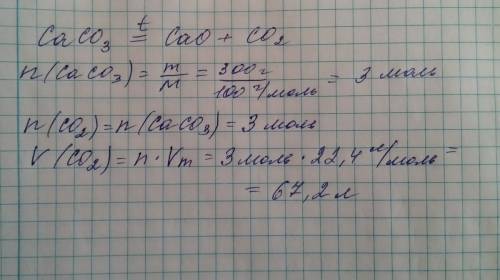 CaCO₃ =ᵗ CaO + CO₂
n(CaCO₃) = m/M = 300г/100 г/моль = 3 моль
n(CO₂) = n(CaCO₃) = 3 моль
V(CO₂) = n · Vm = 3 моль · 22,4 л/моль =
= 67,2 л